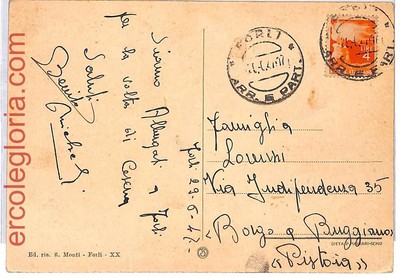 ercolegloria.com
Siamo Alloggiati a Forlì
per la volta di Cesena
Saluti
Forlì 29-6-47-
FORLI
ARR. E PART.
ARR. E PART.
Famiglia
Via Indipendenza 35
Borgo a Buggiano
«Pistoia»
Ed. ris. S. Monti - Forlì - XX